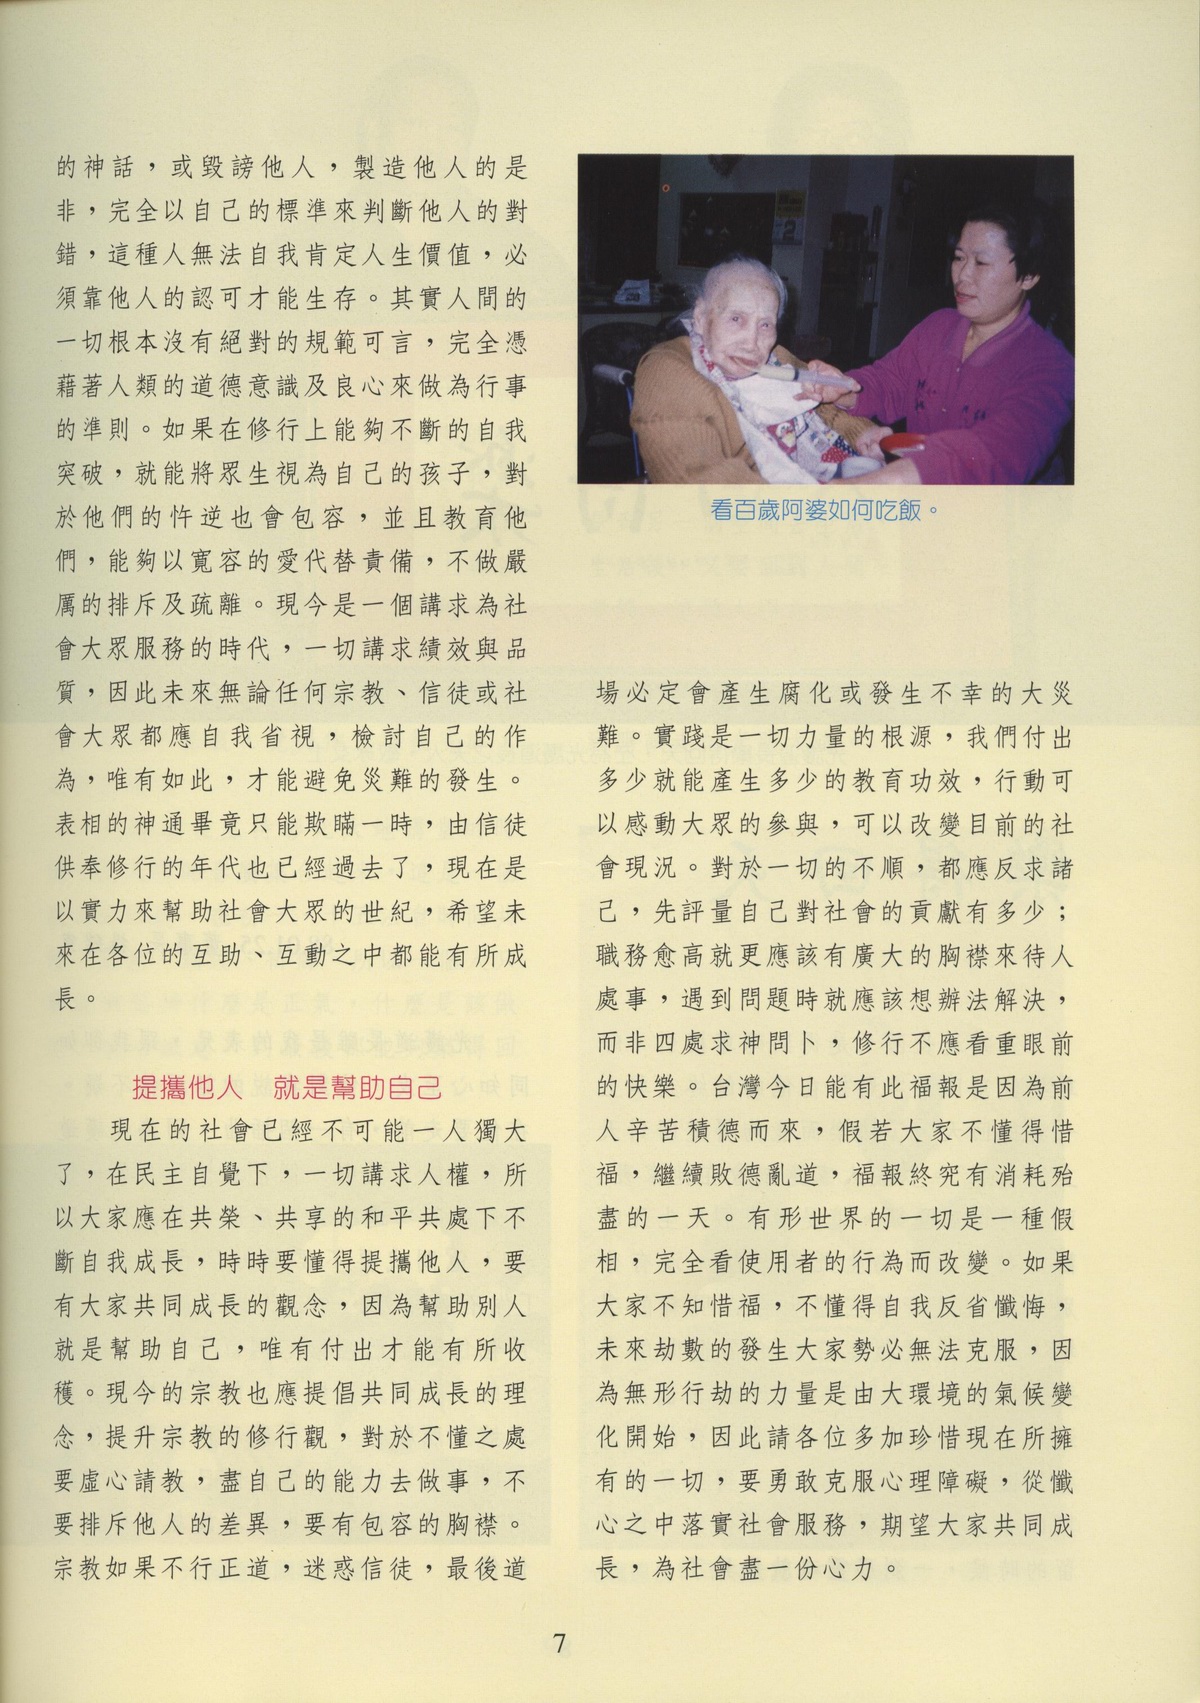 的神話，或毀謗他人，製造他人的是
非，完全以自己的標準來判斷他人的對
錯，這種人無法自我肯定人生價值，必
須靠他人的認可才能生存。其實人間的
一切根本沒有絕對的規範可言，完全憑
藉著人類的道德意識及良心來做為行事
的準則。如果在修行上能夠不斷的自我
突破，就能將眾生視為自己的孩子，對
於他們的忤逆也會包容，並且教育他
們，能夠以寬容的愛代替責備，不做嚴
厲的排斥及疏離。現今是一個講求為社
會大眾服務的時代，一切講求績效與品
質，因此未來無論任何宗教、信徒或社
會大眾都應自我省視，檢討自己的作
為，唯有如此，才能避免災難的發生。
表相的神通畢竟只能欺瞞一時，由信徒
供奉修行的年代也已經過去了，現在是
以實力來幫助社會大眾的世紀，希望未
來在各位的互助、互動之中都能有所成
長。
提攜他人　就是幫助自己
現在的社會已經不可能一人獨大
了，在民主自覺下，一切講求人權，所
以大家應在共榮、共享的和平共處下不
斷自我成長，時時要懂得提攜他人，要
有大家共同成長的觀念，因為幫助別人
就是幫助自己，唯有付出才能有所收
穫。現今的宗教也應提倡共同成長的理
念，提升宗教的修行觀，對於不懂之處
要虛心請教，盡自己的能力去做事，不
要排斥他人的差異，要有包容的胸襟。
宗教如果不行正道，迷惑信徒，最後道
看百歲阿婆如何吃飯。
場必定會產生腐化或發生不幸的大災
難。實踐是一切力量的根源，我們付出
多少就能產生多少的教育功效，行動可
以感動大眾的參與，可以改變目前的社
會現況。對於一切的不順，都應反求諸
己，先評量自己對社會的貢獻有多少；
職務愈高就更應該有廣大的胸襟來待人
處事，遇到問題時就應該想辦法解決，
而非四處求神問卜，修行不應看重眼前
的快樂。台灣今日能有此福報是因為前
人辛苦積德而來，假若大家不懂得惜
福，繼續敗德亂道，福報終究有消耗殆
盡的一天。有形世界的一切是一種假
相，完全看使用者的行為而改變。如果
大家不知惜福，不懂得自我反省懺悔，
未來劫數的發生大家勢必無法克服，因
為無形行劫的力量是由大環境的氣候變
化開始，因此請各位多加珍惜現在所擁
有的一切，要勇敢克服心理障礙，從懺
心之中落實社會服務，期望大家共同成
長，為社會盡一份心力。
7